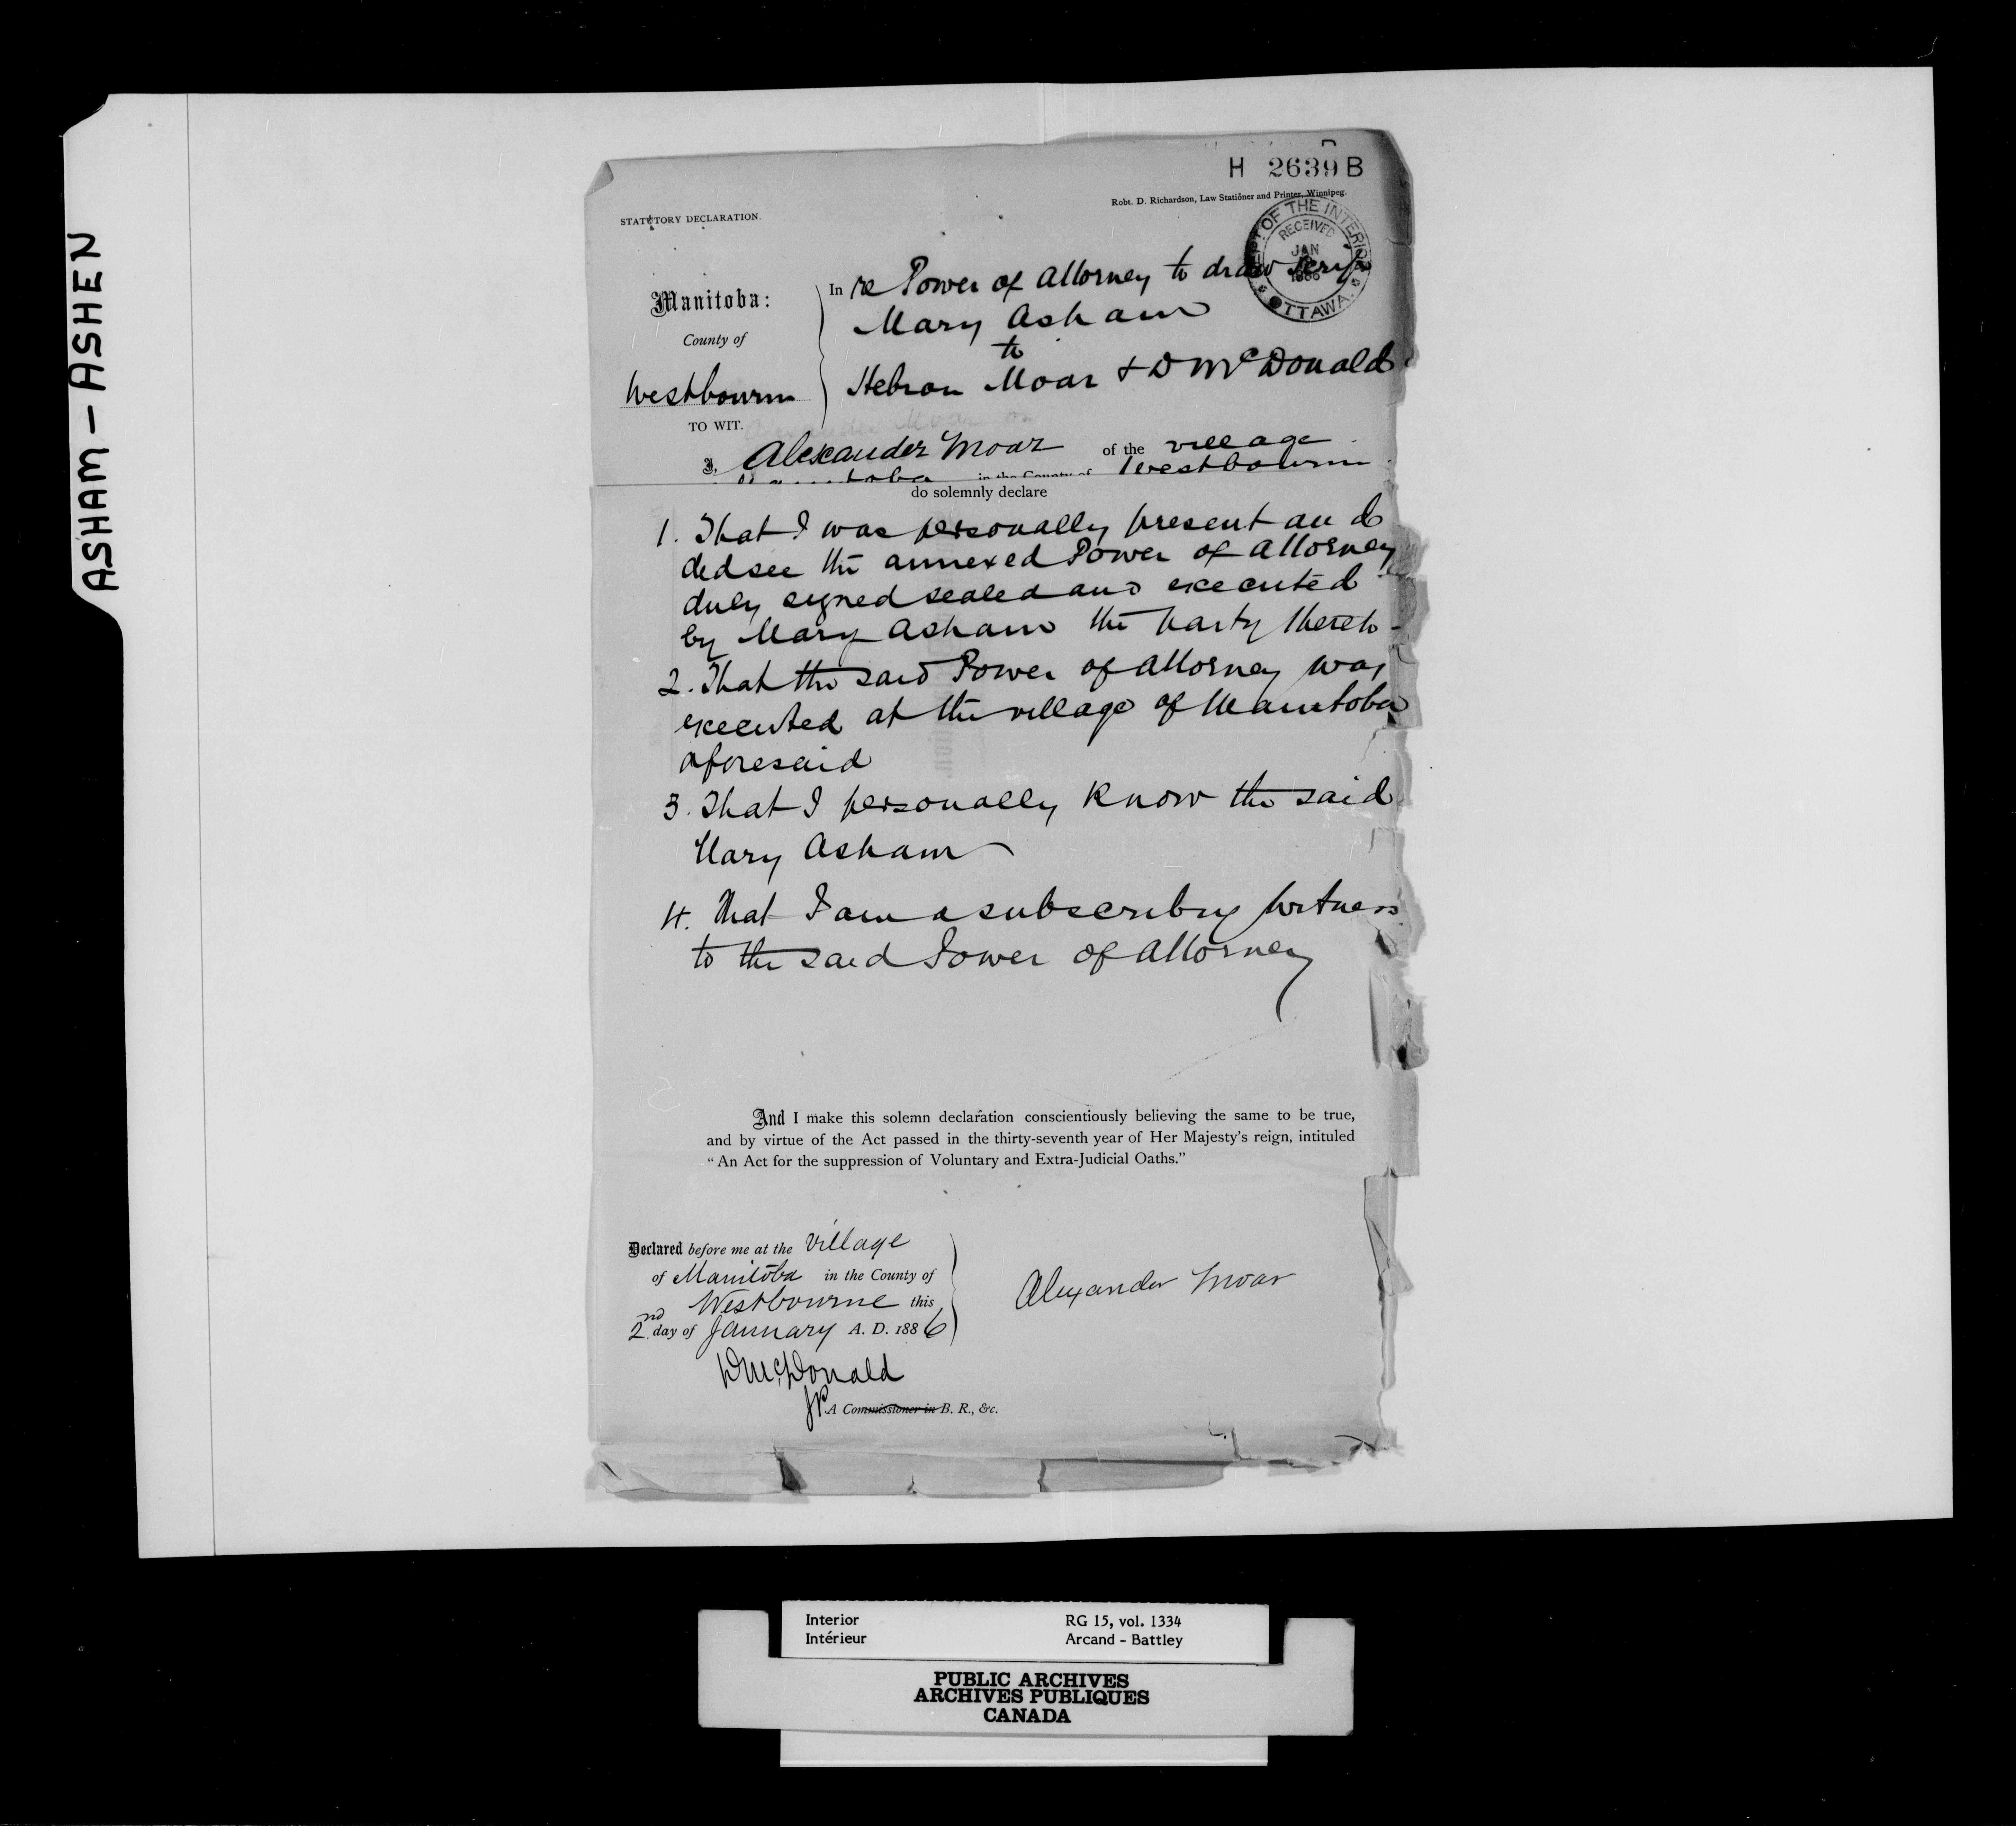 ASHAM – ASHEN
H 2639 B
Robt. D. Richardson, Law Stationer and Printer, Winnipeg.
STATUTORY DECLARATION.
DEPT OF THE INTERIOR
RECEIVED
JAN
1886
OTTAWA.
In re Power of Attorney to draw scrip
Manitoba:
Mary Asham
County of
to
Westbourn
Hebron Moar & D McDonald
TO WIT.
I, Alexander Moar of the village
Manitoba in the County of Westbourn
do solemnly declare
1. That I was personally present and
did see the annexed Power of Attorney
duly signed sealed and executed
by Mary Asham the party thereto
2. That the said Power of Attorney was
executed at the village of Manitoba
aforesaid
3. That I personally know the said
Mary Asham
4. That I am a subscribing witness
to the said Power of Attorney
And I make this solemn declaration conscientiously believing the same to be true,
and by virtue of the Act passed in the thirty-seventh year of Her Majesty's reign, intituled
"An Act for the suppression of Voluntary and Extra-Judicial Oaths."
Declared before me at the village
of Manitoba in the County of
Westbourne this
2nd day of January A. D. 1886
Alexander Moar
D McDonald
JP. A Commissioner in B. R., &c.
Interior
Intérieur
RG 15, vol. 1334
Arcand - Battley
PUBLIC ARCHIVES
ARCHIVES PUBLIQUES
CANADA